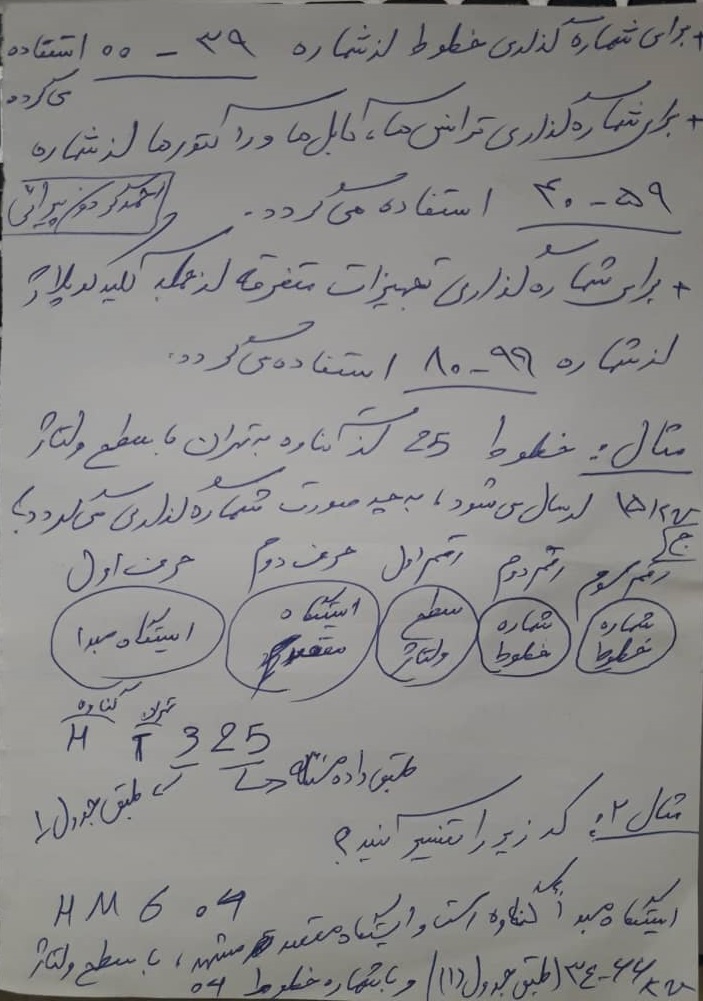 + برای شماره گذاری خطوط از شماره ۳۹ - ۰۰ استفاده
می گردد
+ برای شماره گذاری ترانس ها، کابل ها و راکتورها از شماره
۵۹-۴۰ استفاده می گردد.
احمد گردون پیرائی
+ برای شماره گذاری تجهیزات متفرقه از جمله کلید کوپلاژ
از شماره ۹۹-۸۰ استفاده می گردد.
مثال: خطوط 25 که از کناوه به تهران با سطح ولتاژ
ارسال می شود، به چه صورت شماره گذاری می گردد؟
ج)
حرف اول حرف دوم رقم اول رقم دوم رقم سوم
ایستگاه مبدا ایستگاه مقصد سطح ولتاژ شماره خطوط شماره خطوط
کناوه تهران
H T 3 25
طبق داده مسئله
طبق جدول ۱
مثال ۲: کد زیر را تفسیر کنید؟
H M 6 04
ایستگاه مبدأ کناوه است و ایستگاه مقصد مشهد، با سطح ولتاژ
(طبق جدول (۱)) و با شماره خطوط 04